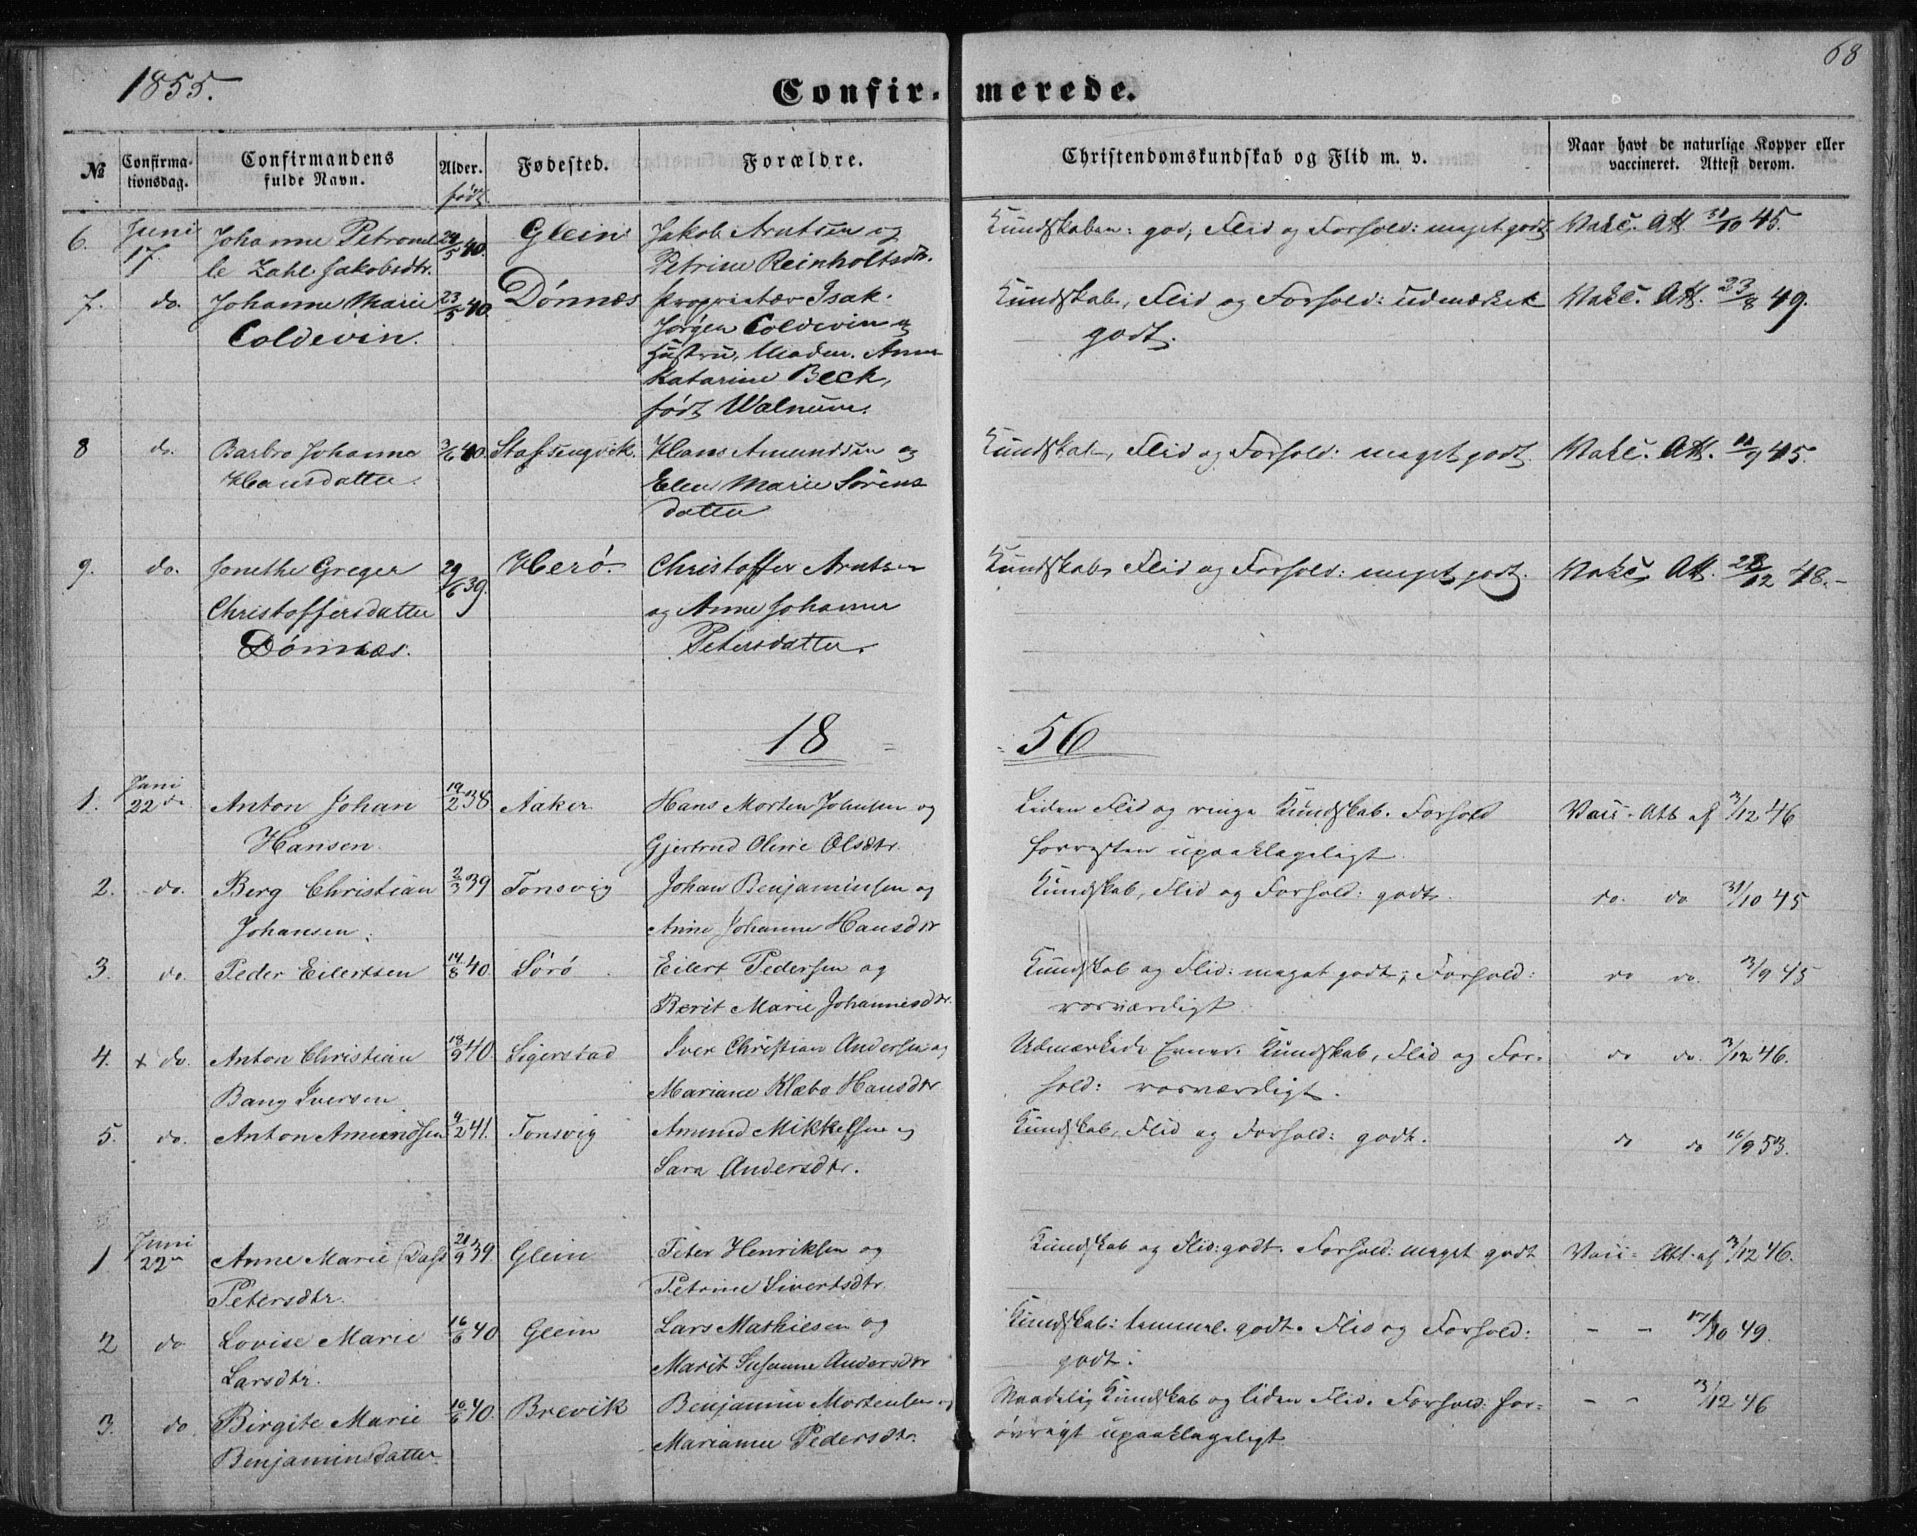 68
1855.
Confirmerede.
№
Confirma-
tionsdag.
Confirmandens
fulde Navn.
Alder.
født
Fødested.
Forældre.
Christendomskundskab og Flid m. v.
Naar havt de naturlige Kopper eller
vaccineret. Attest derom.
6. Juni Johanne Petronel 29/5 40. Glein Jakob Arntsen og Kundskaben: god, Flid og Forhold: meget godt Vakc. Att. 31/10 45.
17. le Zahl Jakobsdtr. Petrine Reinholtsdtr.
7. do. Johanne Marie 23/5 40. Dönnæs Proprietær Isak Kundskab, Flid og Forhold: udmærket Vakc. Att. 23/8 49.
Coldevin. Jørgen Coldevin og godt.
Hustru, Madm. Anne
Katarine Beck,
født Walnum.
8 do. Barbro Johanna 2/6 40. Stafsengvik. Hans Amundsen og Kundskab, Flid og Forhold: meget godt. Vakc. Att. 11/9 45.
Hansdatter. Elen Marie Sörens
datter
9. do. Jonethe Greger 29/6 39. Herö Christoffer Arntsen Kundskab, Flid og Forhold: meget godt. Vakc. Att. 28/12 48.-
Christoffersdatter og Anne Johanna
Dönnæs. Petersdatter.
18 = = 56
1. Juni 22de Anton Johan 19/2 38. Aaker Hans Morten Johnsen og Liden Flid og ringe Kundskab. Forhold Vacc. Att. af 3/12 46
Hansen. Gjertrud Oline Olsdtr. forresten upaaklageligt.
2. do. Berg Christian 2/3 39 Tonsvig Johan Benjaminsen og Kundskab, Flid og Forhold: godt. do. do 31/10 45
Johansen. Anne Johanne Hansdtr
3. do. Peder Eilertsen 14/8 40. Sörö Eilert Pedersen og Kundskab og Flid: meget godt; Forhold: do do. 13/9 45
Berit Marie Johannesdtr. rosværdigt.
4. + do. Anton Christian 18/9 40. Sigerstad Iver Christian Andersen og Udmærkede Evner. Kundskab, Flid og For- do do. 3/12 46.
Bang Iversen Mariane Klæbo Hansdtr hold: rosværdigt.
5. do. Anton Amundsen 9/2 41. Tonsvig Amund Mikkelsen og Kundskab, Flid og Forhold: godt. do do 16/9 53.
Sara Andersdtr.
1 Juni 22de Anne Marie Dahl 21/9 39. Glein Peter Henriksen og Kundskab og Flid: godt. Forhold: meget godt Vacc. Att. af 3/12 46.
Petersdtr. Petrine Sivertsdtr.
2 do Lovise Marie 16/6 40 Glein Lars Mathiesen og Kundskab: temmel. godt. Flid og Forhold: - - 17/10 49.
Larsdtr. Marit Susanne Andersdtr godt.
3. do Birgite Marie 10/6 40. Brevik Benjamin Mortensen og Maadelig Kundskab og liden Flid. Forhold for- - - 3/12 46
Benjaminsdatter Marianne Pedersdtr. övrigt upaaklageligt